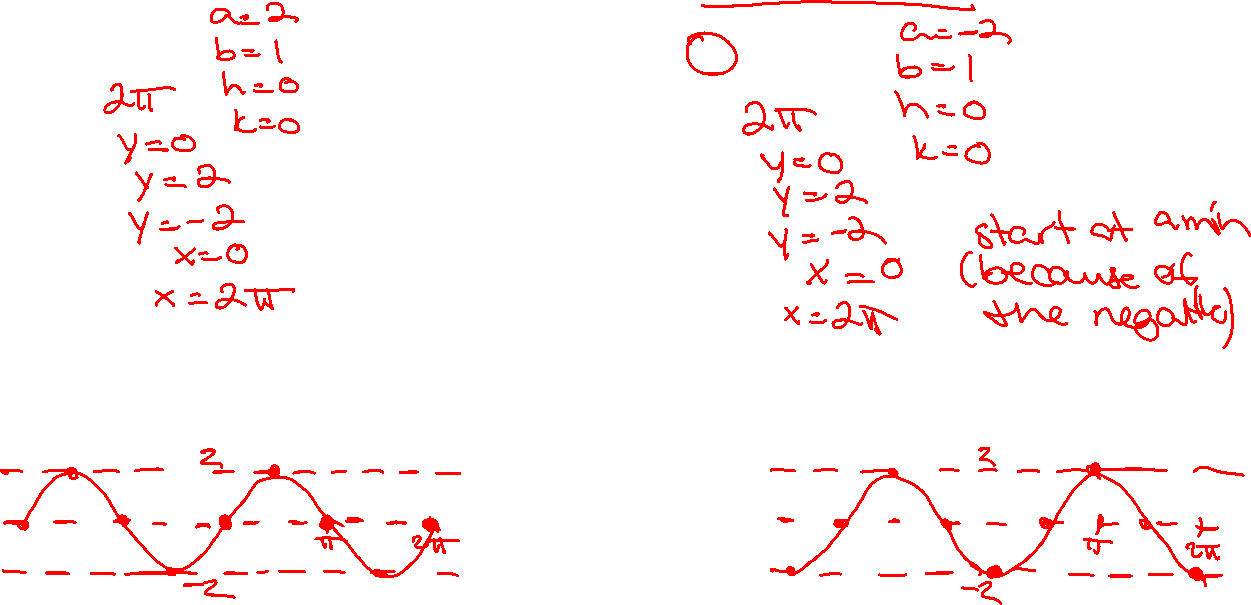 a=2
b=1
h=0
k=0
2π
y=0
y=2
y=-2
x=0
x=2π
2
π
2π
-2
a=-2
b=1
h=0
k=0
2π
y=0
y=2
y=-2
x=0
x=2π
start at a min
(because of
the negative)
2
π
2π
-2